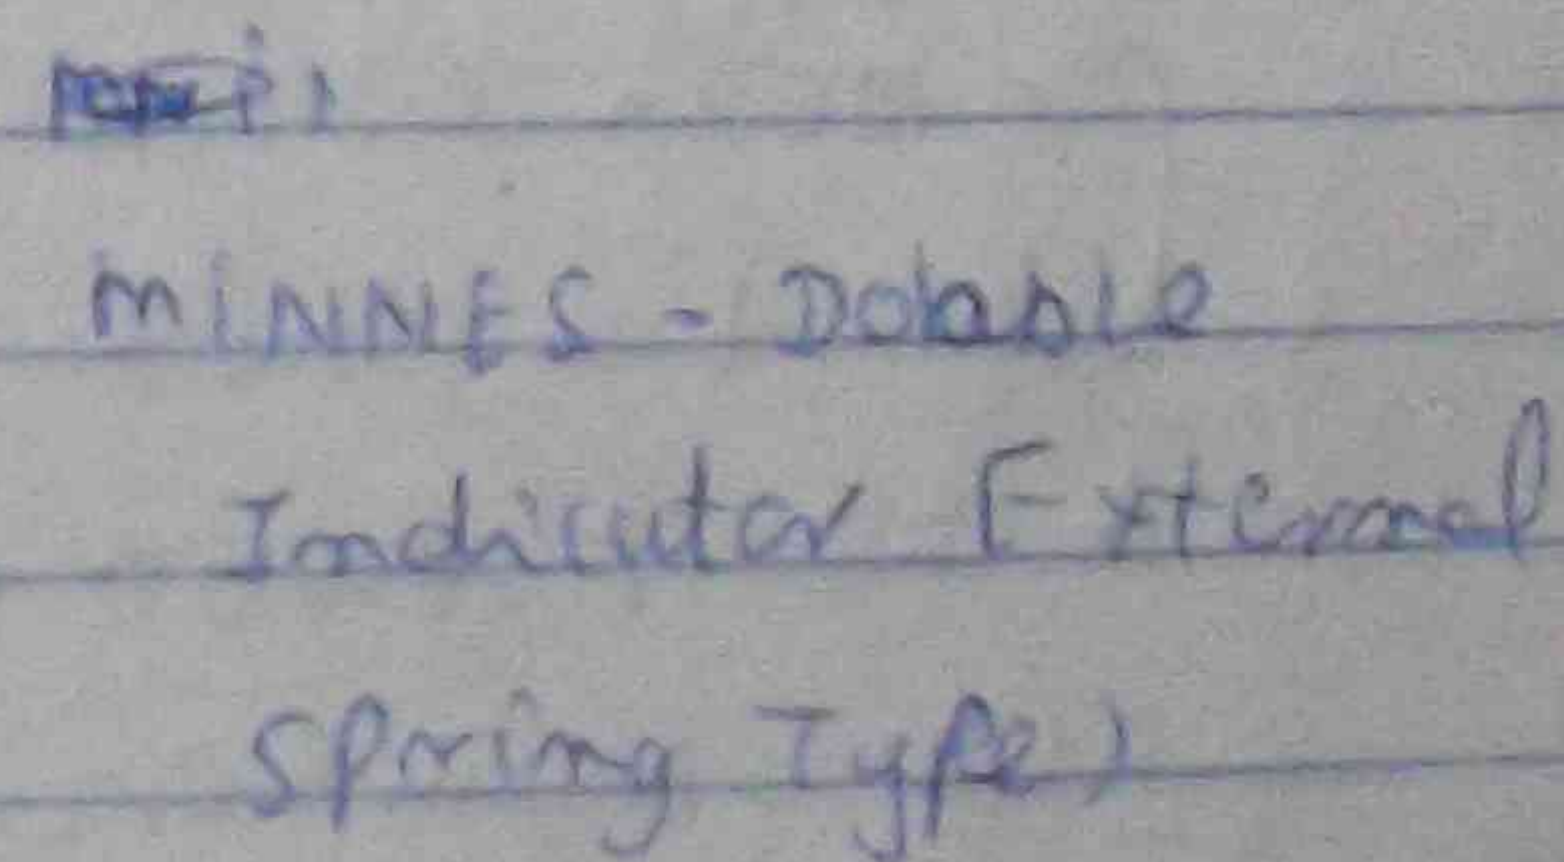 MINNES - Dobble
Indicator External
Spring Type)